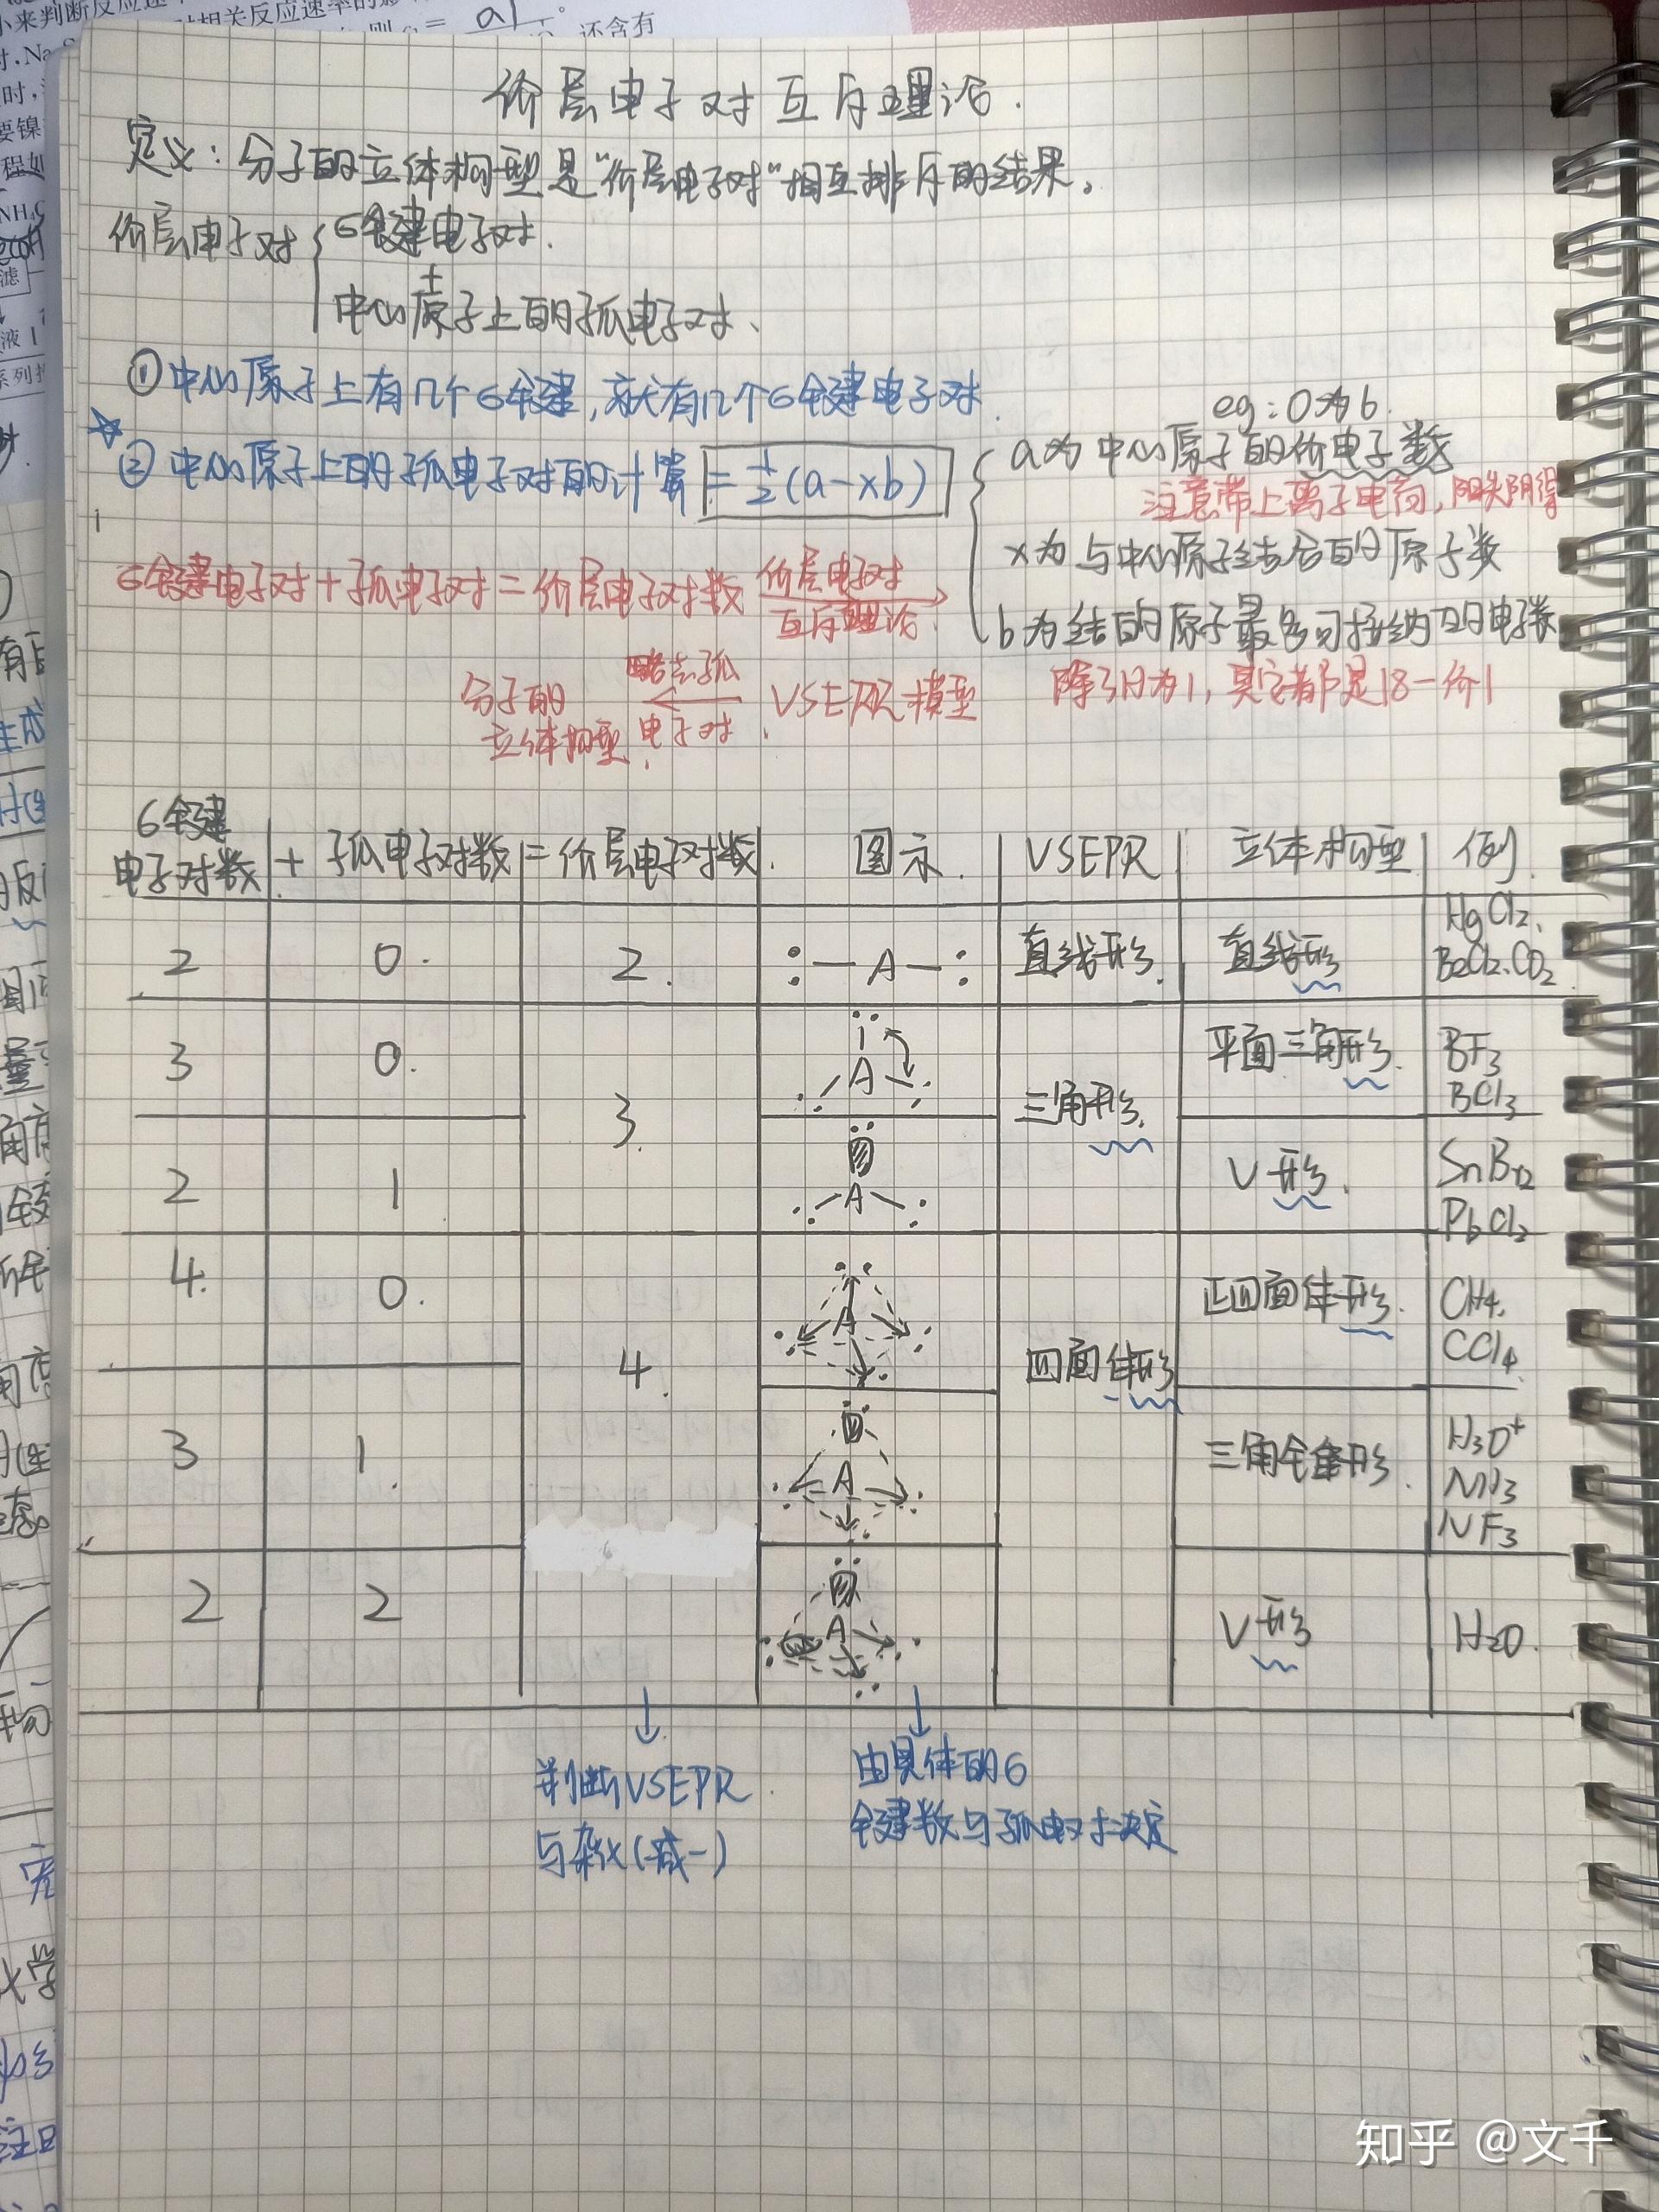 价层电子对互斥理论.
定义：分子的立体构型是“价层电子对”相互排斥的结果。
价层电子对 { σ键电子对.
+
中心原子上的孤电子对、
① 中心原子上有几个σ键，就有几个σ键电子对.
eg：O为b.
☆
② 中心原子上的孤电子对的计算 = ½(a-xb)
a为中心原子的价电子数
注意带上离子电荷，阳失阴得
x为与中心原子结合的原子数
b为结的原子最多可接纳的电子数
除了H为1，其它都是|8-价|
σ键电子对+孤电子对=价层电子对数 价层电子对互斥理论
VSEPR模型
略去孤电子对.
分子的立体构型.
σ键电子对数 + 孤电子对数 = 价层电子对数. 图示. VSEPR 立体构型 例.
2 0. 2. :—A—: 直线形. 直线形 HgCl2、BeCl2.CO2
3 0. 3. A 三角形. 平面三角形. BF3 BCl3
2 1 A V形. SnBr2 PbCl2
4. 0. 4. A 四面体形 正四面体形. CH4. CCl4
3 1. A 三角锥形. H3O+ NH3 NF3
2 2 A V形 H2O.
↓ 判断VSEPR
与杂化(减一)
↓ 由具体的σ
键数与孤电对决定
知乎 @文千